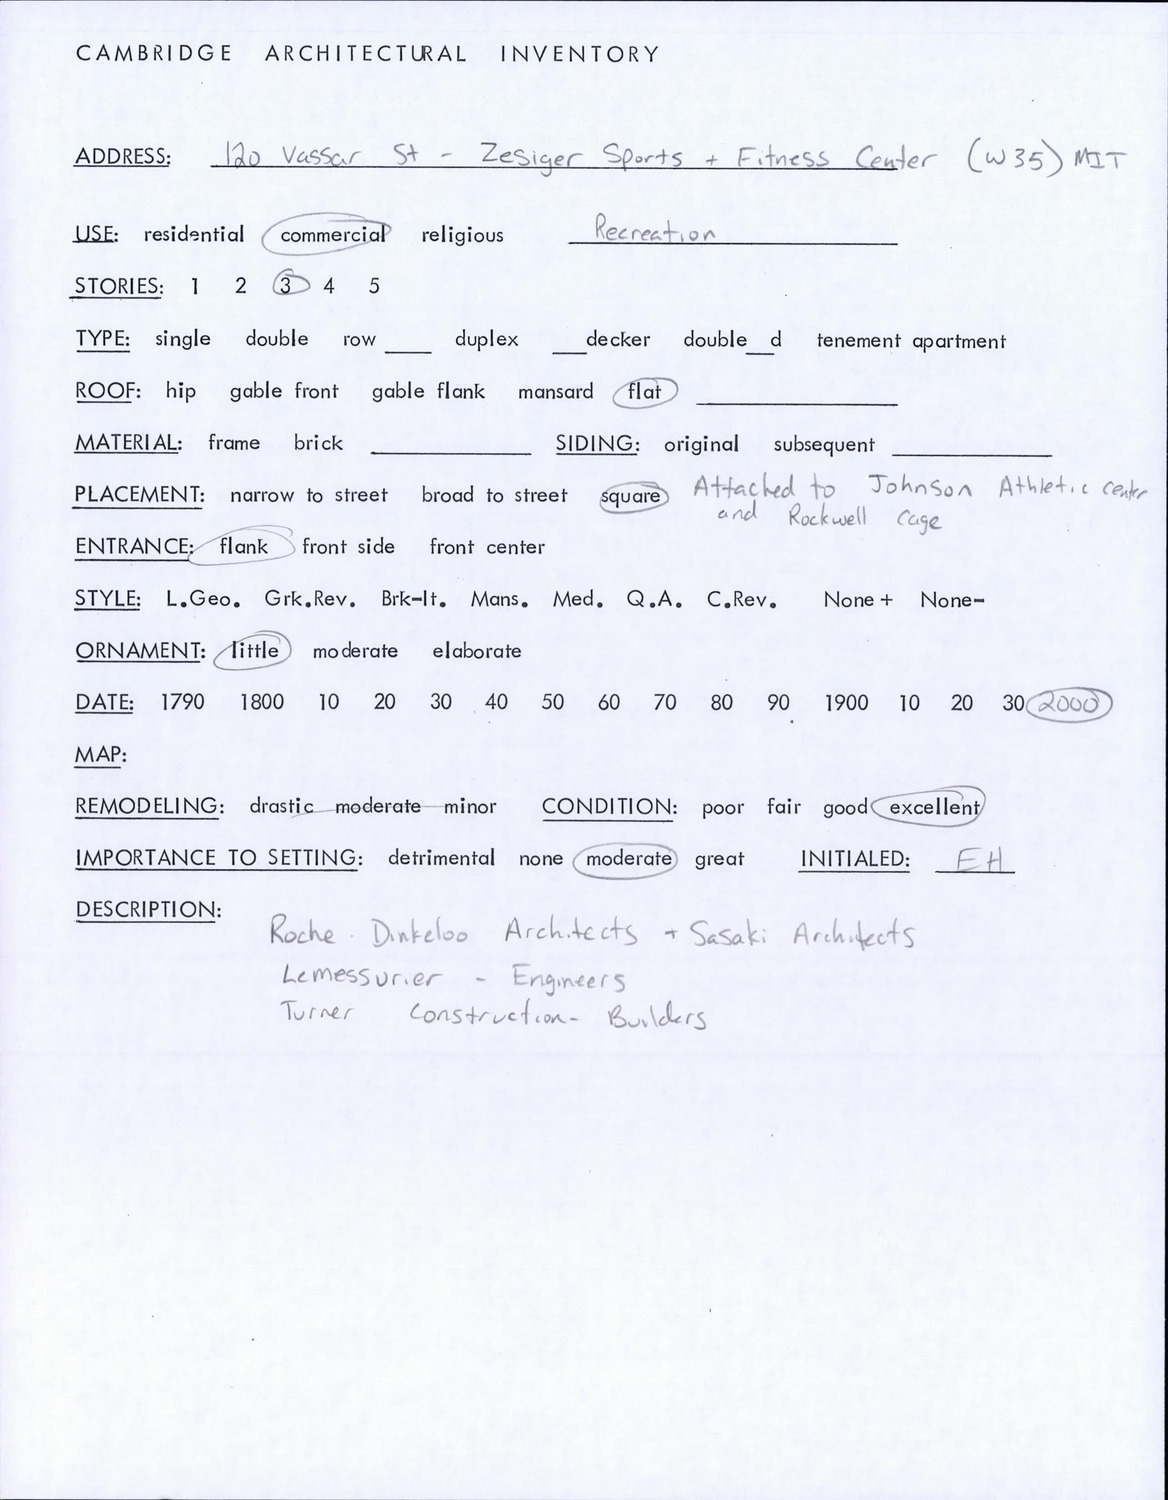 CAMBRIDGE ARCHITECTURAL INVENTORY
ADDRESS: 120 Vassar St - Zesiger Sports + Fitness Center (W35) MIT
USE: residential commercial religious Recreation
STORIES: 1 2 3 4 5
TYPE: single double row ____ duplex ___decker double__d tenement apartment
ROOF: hip gable front gable flank mansard flat ____
MATERIAL: frame brick ____ SIDING: original subsequent ____
PLACEMENT: narrow to street broad to street square Attached to Johnson Athletic center
and Rockwell Cage
ENTRANCE: flank front side front center
STYLE: L.Geo. Grk.Rev. Brk-It. Mans. Med. Q.A. C.Rev. None+ None-
ORNAMENT: little moderate elaborate
DATE: 1790 1800 10 20 30 40 50 60 70 80 90 1900 10 20 30 2000
MAP:
REMODELING: drastic moderate minor CONDITION: poor fair good excellent
IMPORTANCE TO SETTING: detrimental none moderate great INITIALED: EH
DESCRIPTION:
Roche Dinkeloo Architects + Sasaki Architects
Lemessurier - Engineers
Turner Construction - Builders